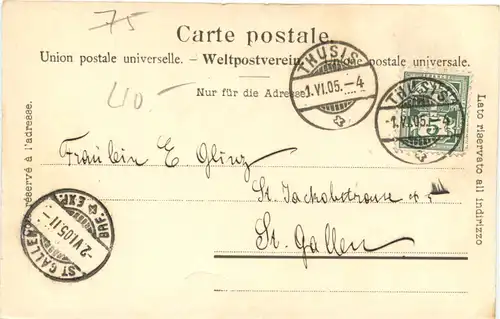 75
Carte postale.
Union postale universelle. — Weltpostverein. — Unione postale universale.
Nur für die Adresse.
40.-
THUSIS
-1.VI.05.-4
THUSIS
-1.VI.05.-4
5
Lato riservato all indirizzo
réservé à l'adresse.
Fräulein E
St. Jackobstrasse
St. Gallen
ST. GALLEN
-2.VI.05.11-
BRF. EXP.